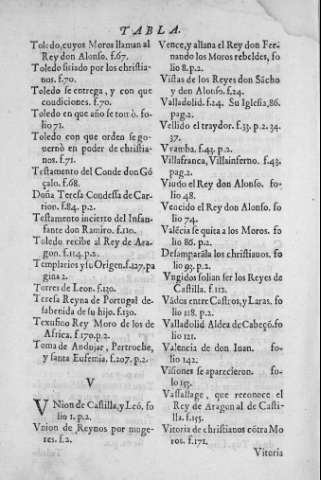 TABLA.
Toledo, cuyos Moros llaman al
Rey don Alonso. f.67.
Toledo sitiado por los christia-
nos. f.70.
Toledo se entrega, y con que
condiciones. f.70.
Toledo en que año se tomò. fo-
lio 71.
Toledo con que orden se go-
uernò en poder de christia-
nos. f.71.
Testamento del Conde don Gõ
çalo. f.68.
Doña Teresa Condessa de Car-
rion. f.84. p.2.
Testamento incierto del Infan-
fante don Ramiro. f.110.
Toledo recibe al Rey de Ara-
gon. f.114. p.2.
Templarios y su Origen. f.127. pa
gina 2.
Torres de Leon. f.130.
Teresa Reyna de Portugal de-
sabenida de su hijo. f.130.
Texufino Rey Moro de los de
Africa. f.170. p.2.
Toma de Andujar, Pertroche,
y santa Eufemia. f.207. p.2.
V
VNion de Castilla, y Leõ, fo
lio 1. p.2.
Vnion de Reynos por muge-
res. f.2.
Vence, y allana el Rey don Fer-
nando los Moros rebeldes, fo
lio 8. p.2.
Vistas de los Reyes don Sãcho
y don Alonso. f.24.
Valladolid. f.24. Su Iglesia, 86.
pag.2.
Vellido el traydor. f.33. p.2. 34.
37.
Vramba. f.43. p.2.
Villafranca, Villainferno. f.43.
pag.2.
Viudo el Rey don Alonso. fo-
lio 48.
Vencido el Rey don Alonso. fo
lio 74.
Valẽcia se quita a los Moros. fo
lio 86. p.2.
Desamparãla los christianos. fo
lio 93. p.2.
Vngidos solian ser los Reyes de
Castilla. f.112.
Vãdos entre Castros, y Laras. fo
lio 118. p.2.
Valladolid Aldea de Cabeçõ. fo
lio 121.
Valencia de don Iuan. fo-
lio 142.
Visiones se aparecieron. fo-
lio 153.
Vassallage, que reconoce el
Rey de Aragon al de Casti-
lla. f.155.
Vitoria de christianos cõtra Mo
ros. f.171.
Vitoria